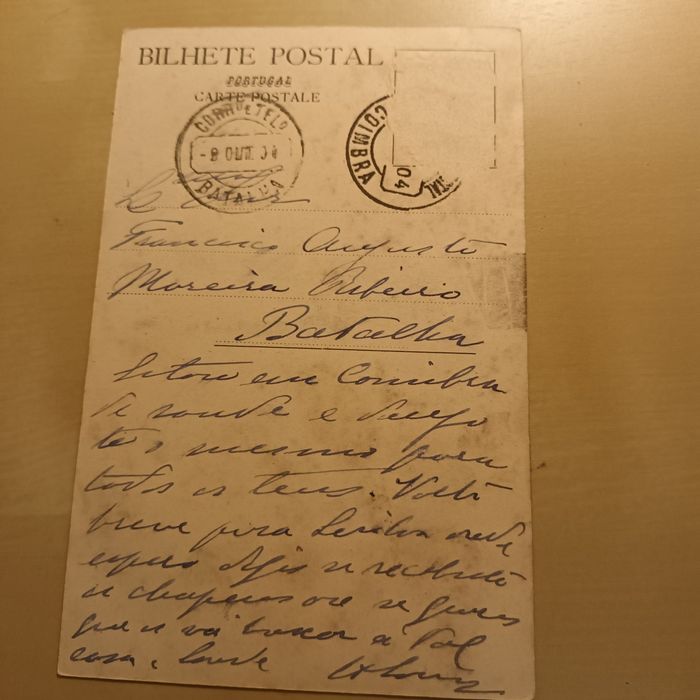 BILHETE POSTAL
PORTUGAL
CARTE POSTALE
CORRO E TELO
-8 OUT. 04
BATALHA
COIMBRA
04
Francisco Augusto
Moreira Ribeiro
Batalha
Estou em Coimbra
de saude e desejo
te o mesmo para
todos os teus. Volto
breve para Lisboa onde
espero
se queres
que o vá buscar a tal
casa. Saude